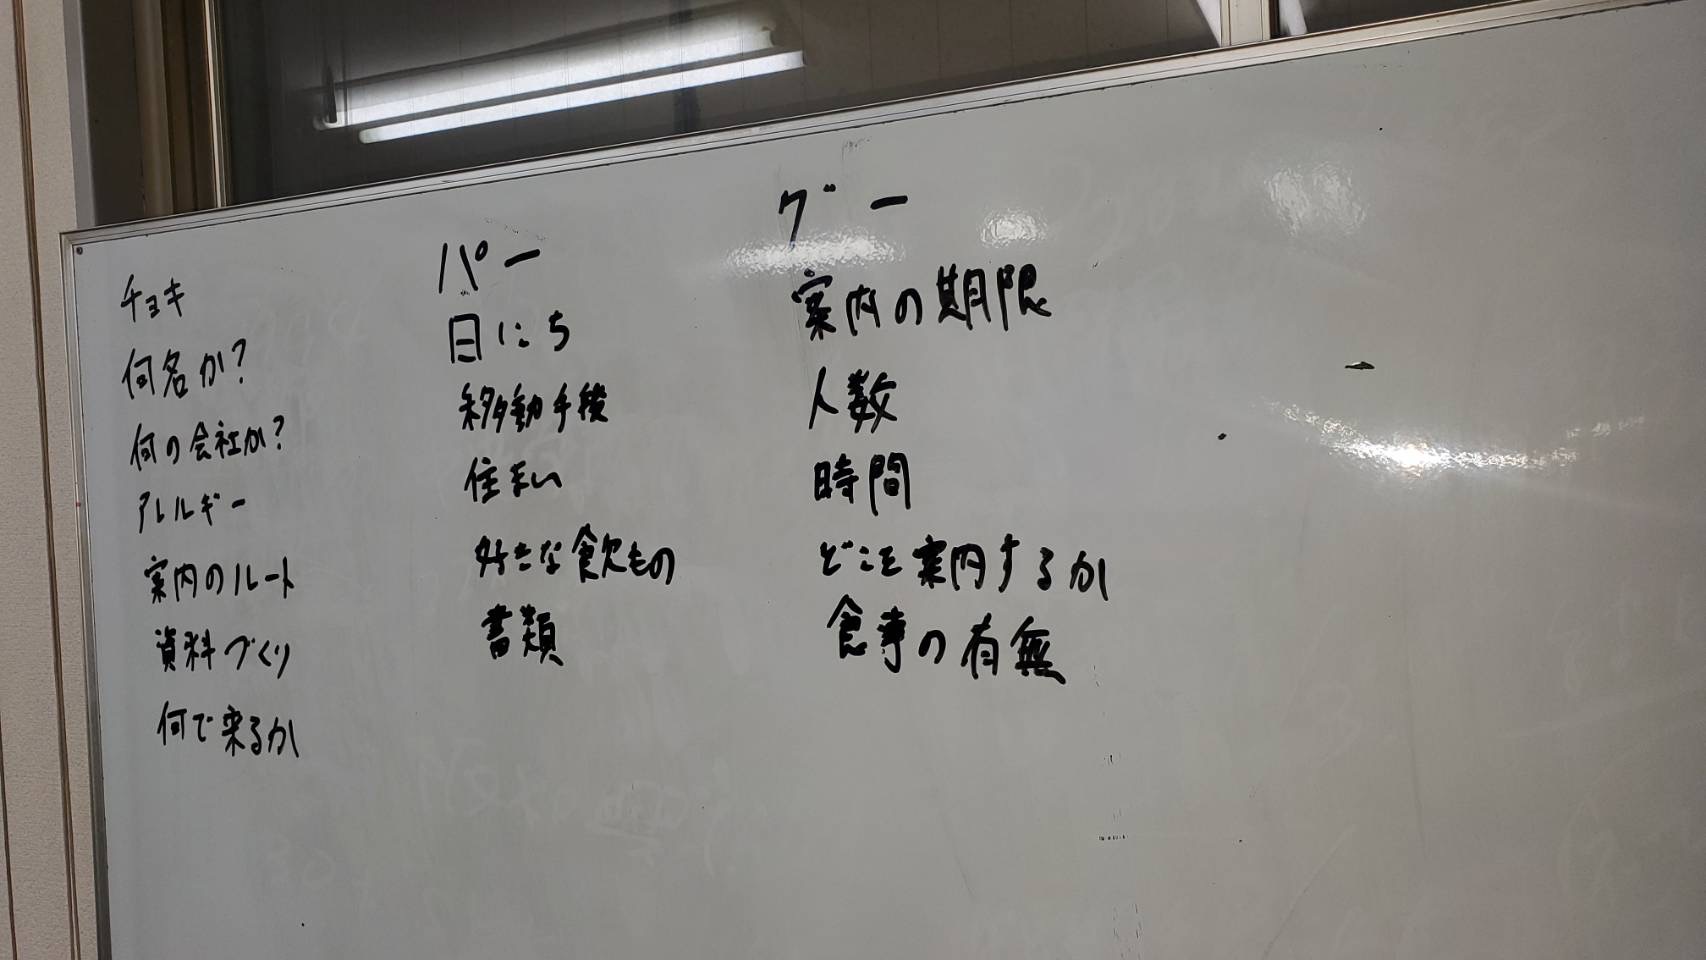 チョキ
何名か?
何の会社か?
アレルギー
案内のルート
資料づくり
何で来るか
パー
日にち
移動手後
住まい
好きな飲もの
書類
グー
案内の期限
人数
時間
どこを案内するか
食事の有無